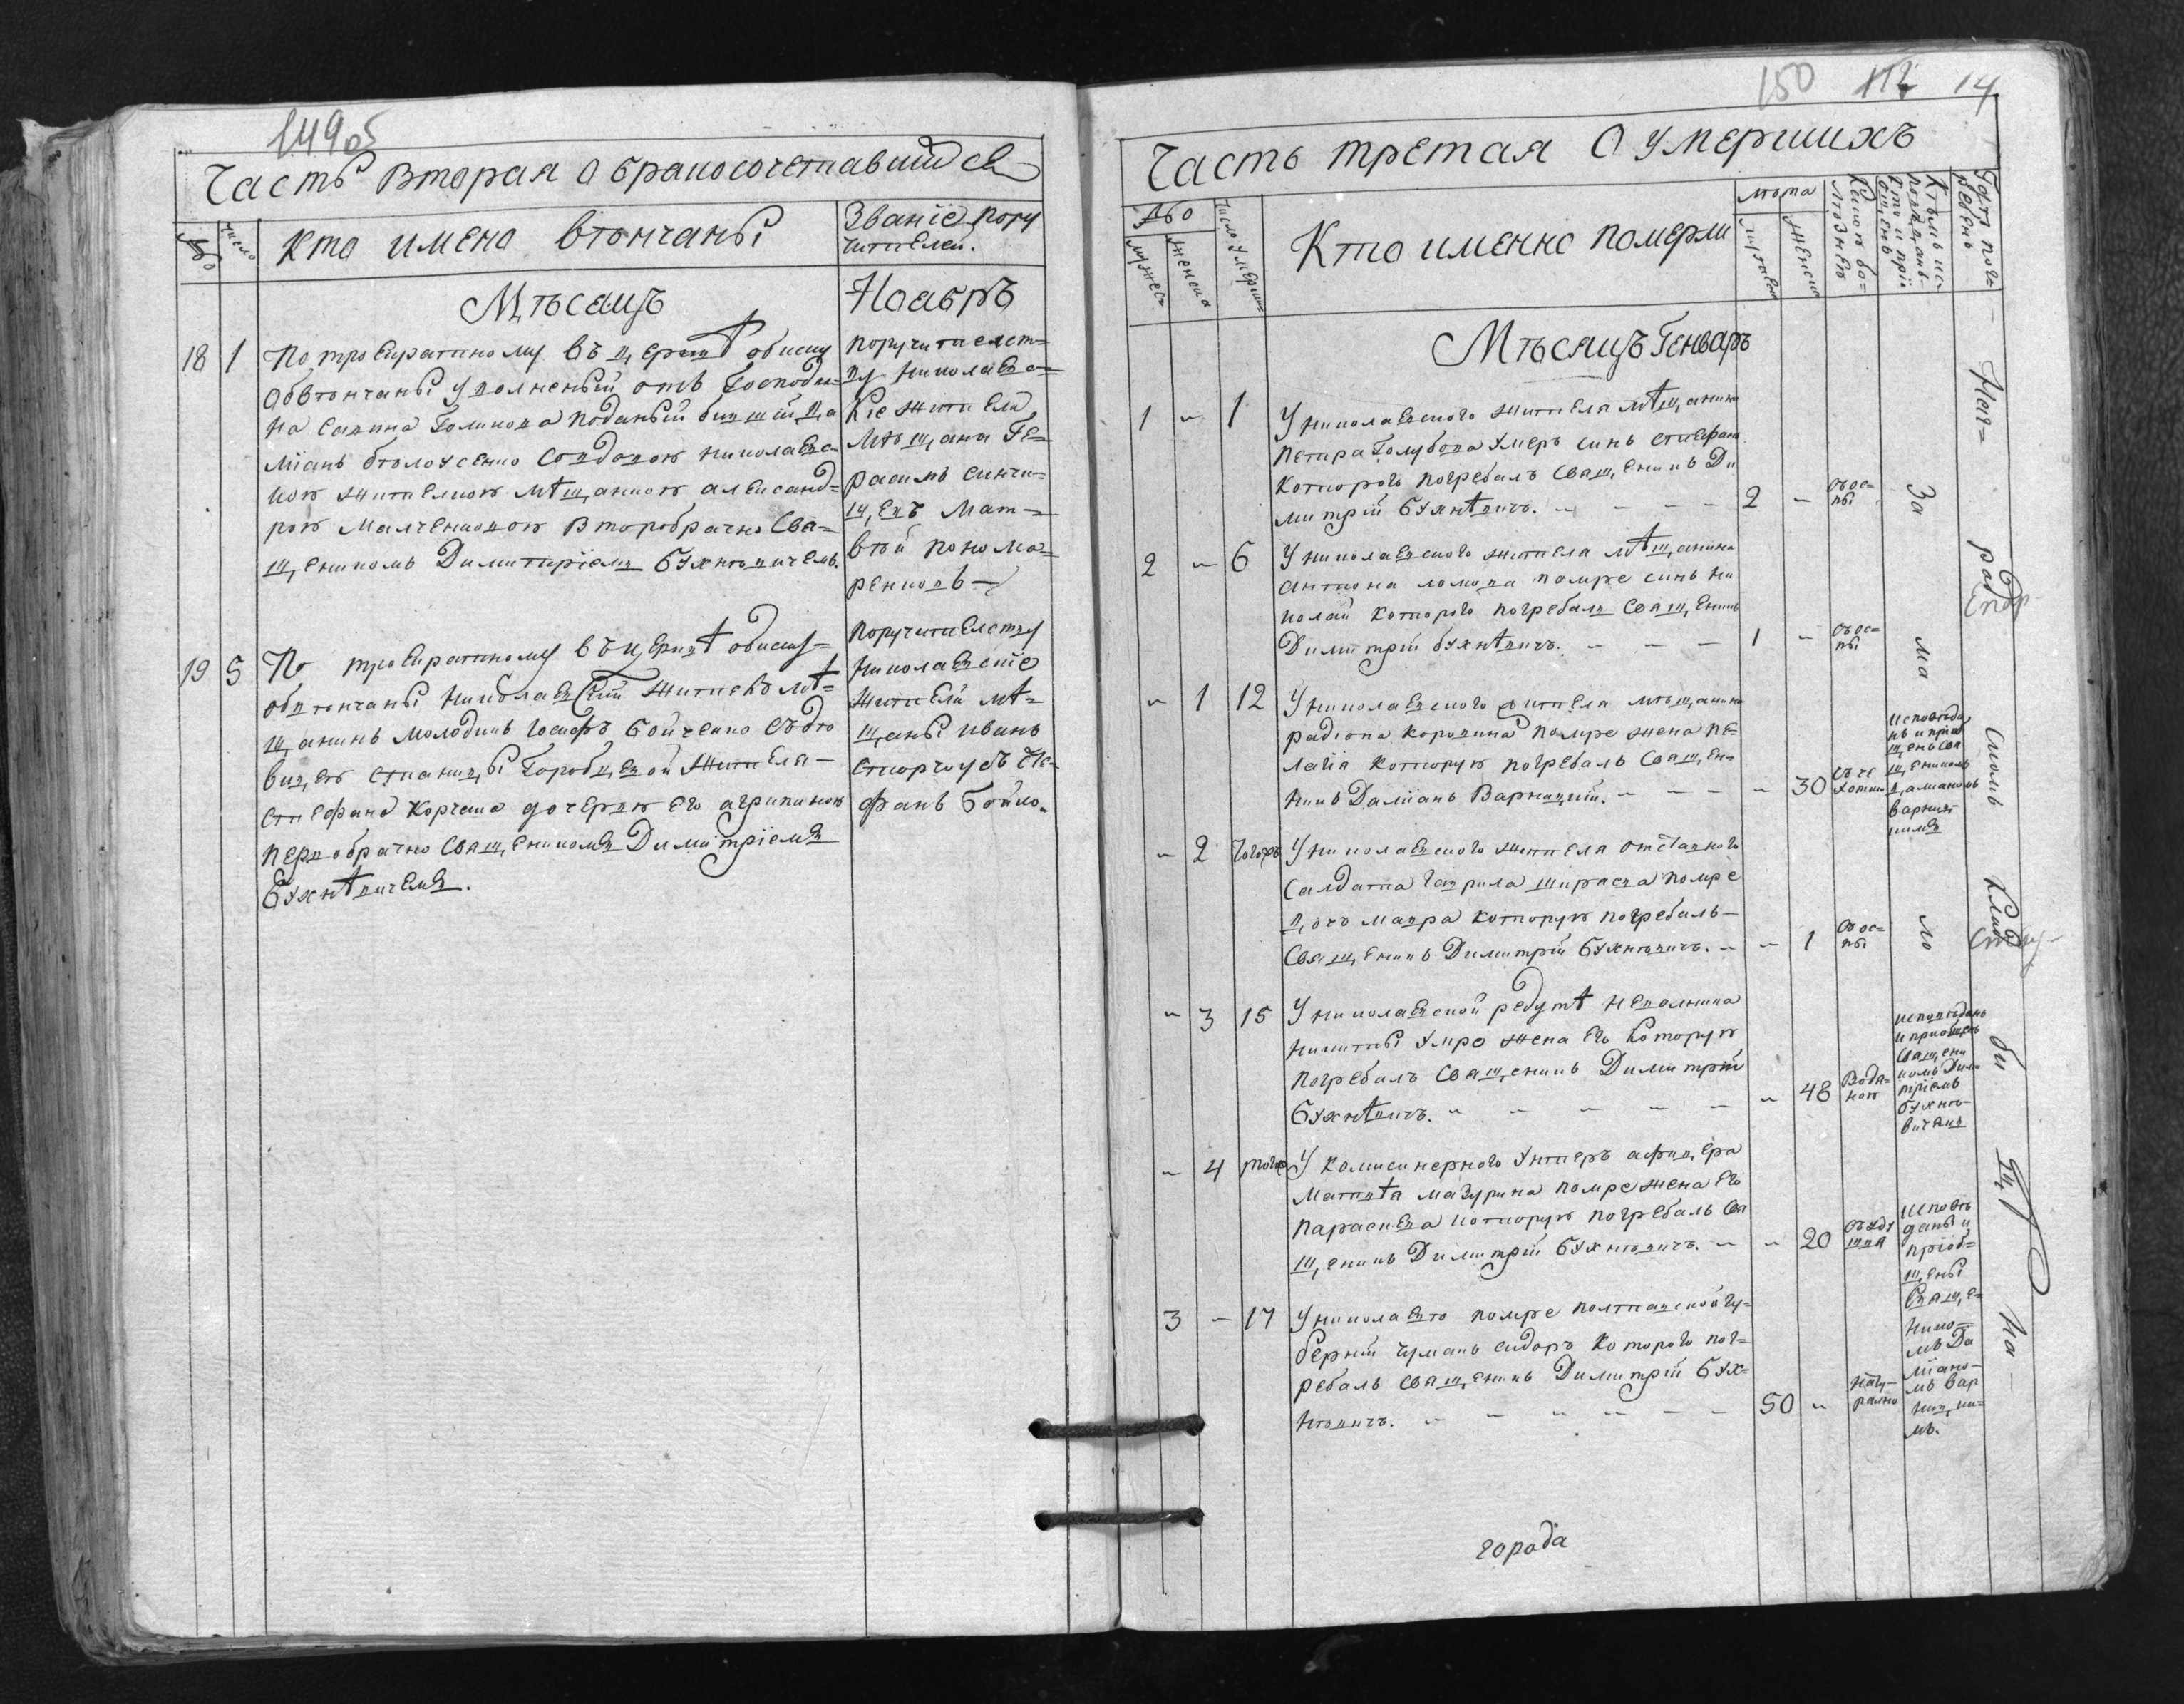 149об
Часть вторая о бракосочетавшихся
Число
Кто имено вѣнчаны
Званіе пору
чителей.
Мѣсяцъ
Ноябръ
18 1
По троекратному въ церквѣ обиску
обвѣнчаны уволненый отъ Господи=
на Савина Голикова поданый бившій
міянъ бѣлоусенко совдовою николаевс=
кою жителкою мѣщанкою александ=
рою малченковою второбрачно Свя=
щеникомъ Димитріемъ Бухнѣвичемъ.
поручителст=
ву николаевс=
кіе жители
мѣщани Ге=
расимъ
мат=
вѣй поно ма=
ренковъ
19 5
По троекратному въ церквѣ обиску=
обвѣнчаны николаевскій житель мѣ=
щанинъ молодикъ Іосифъ Бойченко съ до
вицею станицы Горобцевой жителя
стефана Корчака дочерью его агрипиною
первобрачно Священикомъ Димитріемъ
Бухнѣвичемъ.
поручителству
николаевскіе
жители мѣ=
щаны иванъ
фанъ Бойко.
150 14
Часть третая О умершихъ
мужес=
женска
Число умерши=
Кто именно померли
лѣта
женска
Мѣсяцъ Генваръ
1 - 1
У николаевского жителя мѣщанина
петра Голубова умеръ синъ стефанъ
которого погребалъ Священикъ Ди
митрій Бухнѣвичъ. - - - - 2 -
отъ ос=
пы
2 - 6
У николаевского жителя мѣщанина
антона ломова помре синъ ни
колай которого погребалъ Священикъ
Димитрій бухнѣвичъ. - - - 1 -
отъ ос=
пы
- 1 12
У николаевского жителя мѣщанина
радіона коровина помре жена пе=
лагія которую погребалъ Священ=
никъ Даміянъ Варницкій. - - - - 30
исповѣда
нъ и пріоб
щенъ Свя
щеникомъ
- 2 тогожъ
У николаевского жителя отставного
салдата Гаврила ширяева помре
дочъ мавра которую погребалъ
Священикъ Димитрій Бухнѣвичъ. - - 1
отъ ос=
пы
- 3 15
У николаевской редутѣ неволника
никиты умре жена его которую
погребалъ Священикъ Димитрій
Бухнѣвичъ. - - - - - - 48
Водя=
ною
исповѣданъ
и приобщенъ
Священи
комъ Дими
тріемъ
бухнѣ=
вичемъ
- 4 тогожъ
У комисинерного Унтеръ афицера
матвѣя мазурина помре жена его
параскева которую погребалъ Свя
щеникъ Димитрій Бухнѣвичъ. - - 20
исповѣ
даны и
пріоб=
щены
Свяще=
нико=
мъ Да
міано=
мъ Вар
ницки=
мъ.
3 - 17
У николаево помре полтавской гу=
берніи чумакъ сидоръ которого пог=
ребалъ Священикъ Димитрій Бух=
нѣвичъ. - - - - - - 50 -
нату=
рално
На г=
род
скомъ
клад
би
щѣ
На
За
ма
ло
города